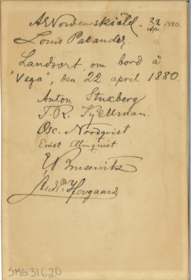 AENordenskiöld
Louis Palander
Landvort om bord å
"Vega", den 22 april 1880
Anton Stuxberg
F. R. Kjellman
Osc. Nordqvist
Ernst Almquist
Andr. Hovgaard
SMG31620